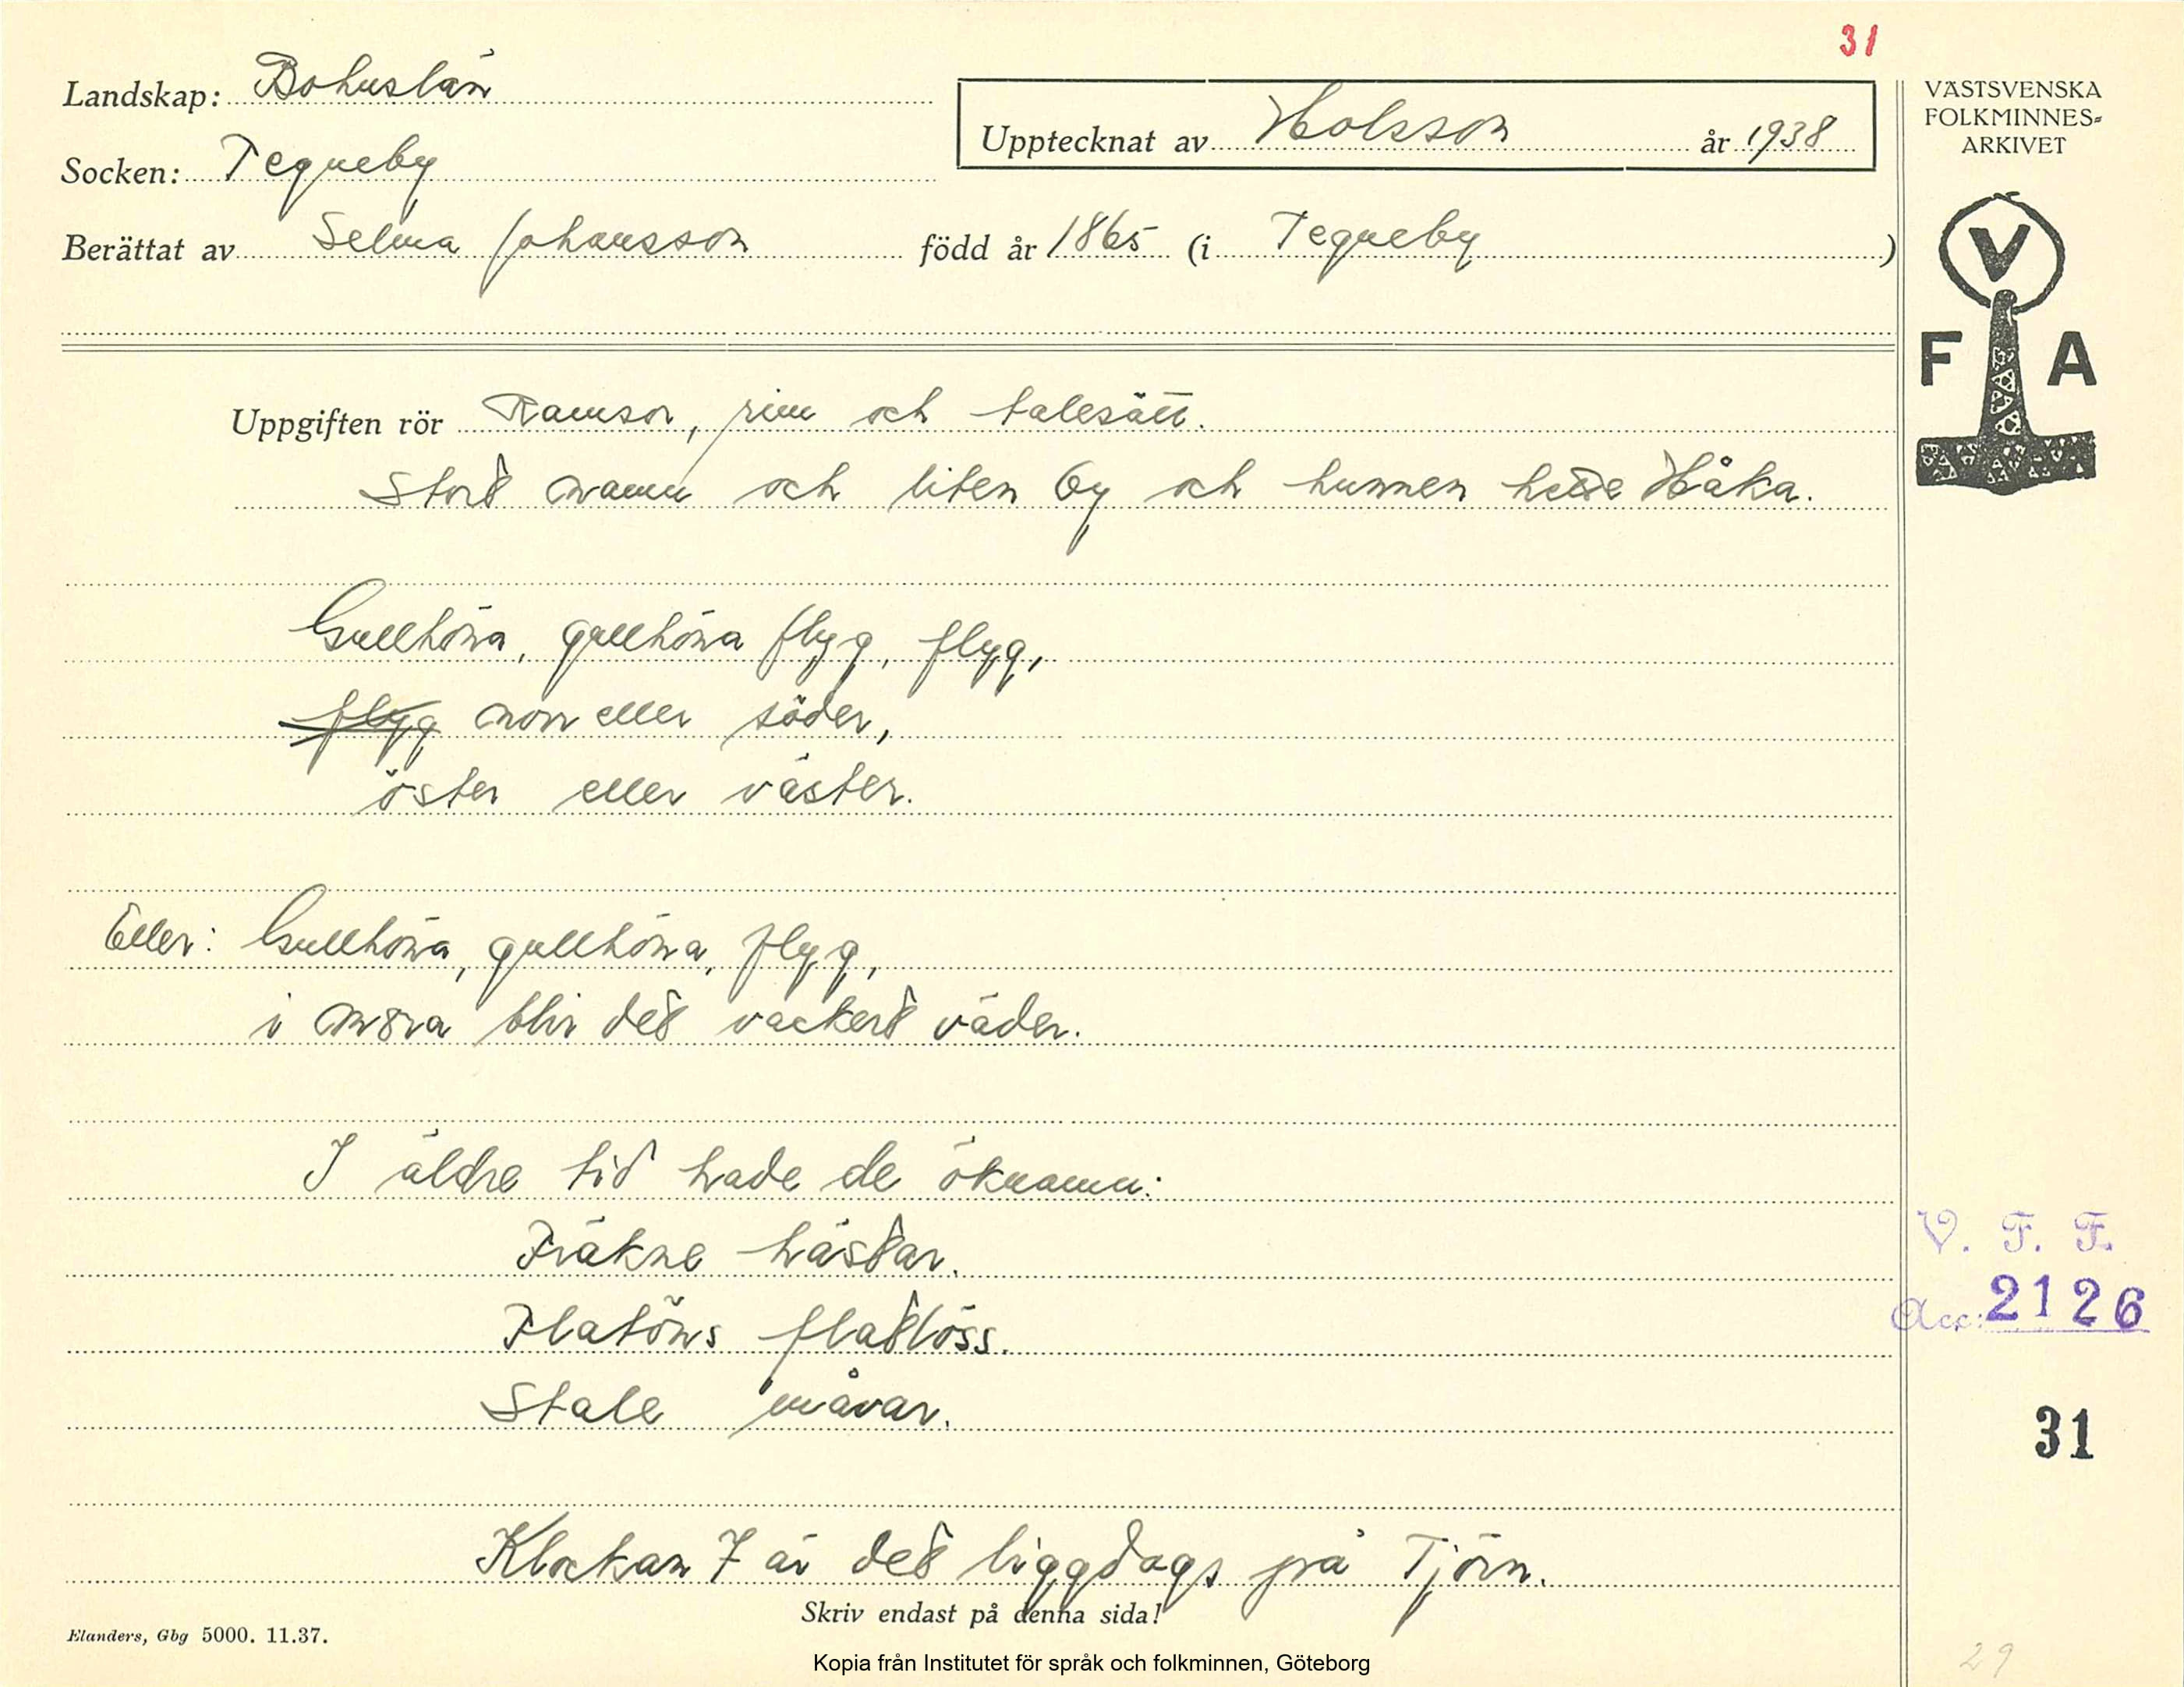 31
Landskap: Bohuslän
Socken: Tegneby
Upptecknat av Holsson år 1938
Berättat av Selma Johansson född år 1865 (i Tegneby)
VÄSTSVENSKA
FOLKMINNES=
ARKIVET
V
F A
Uppgiften rör Ramsor, rim och talesätt.
Stort namn och liten by och hunnen hette Håka.
Gullhöna, gullhöna flyg, flyg,
flyg norr eller söder,
öster eller väster.
Eller: Gullhöna, gullhöna, flyg,
i mora blir det vackert väder.
I äldre tid hade de öknamn:
Fräkne hästar.
Flatöns flatlöss.
Stale måvar.
V. F. F.
Acc: 2126
31
Klockan 7 är det liggdags på Tjörn.
Skriv endast på denna sida!
Elanders, Gbg 5000. 11.37.
Kopia från Institutet för språk och folkminnen, Göteborg
29